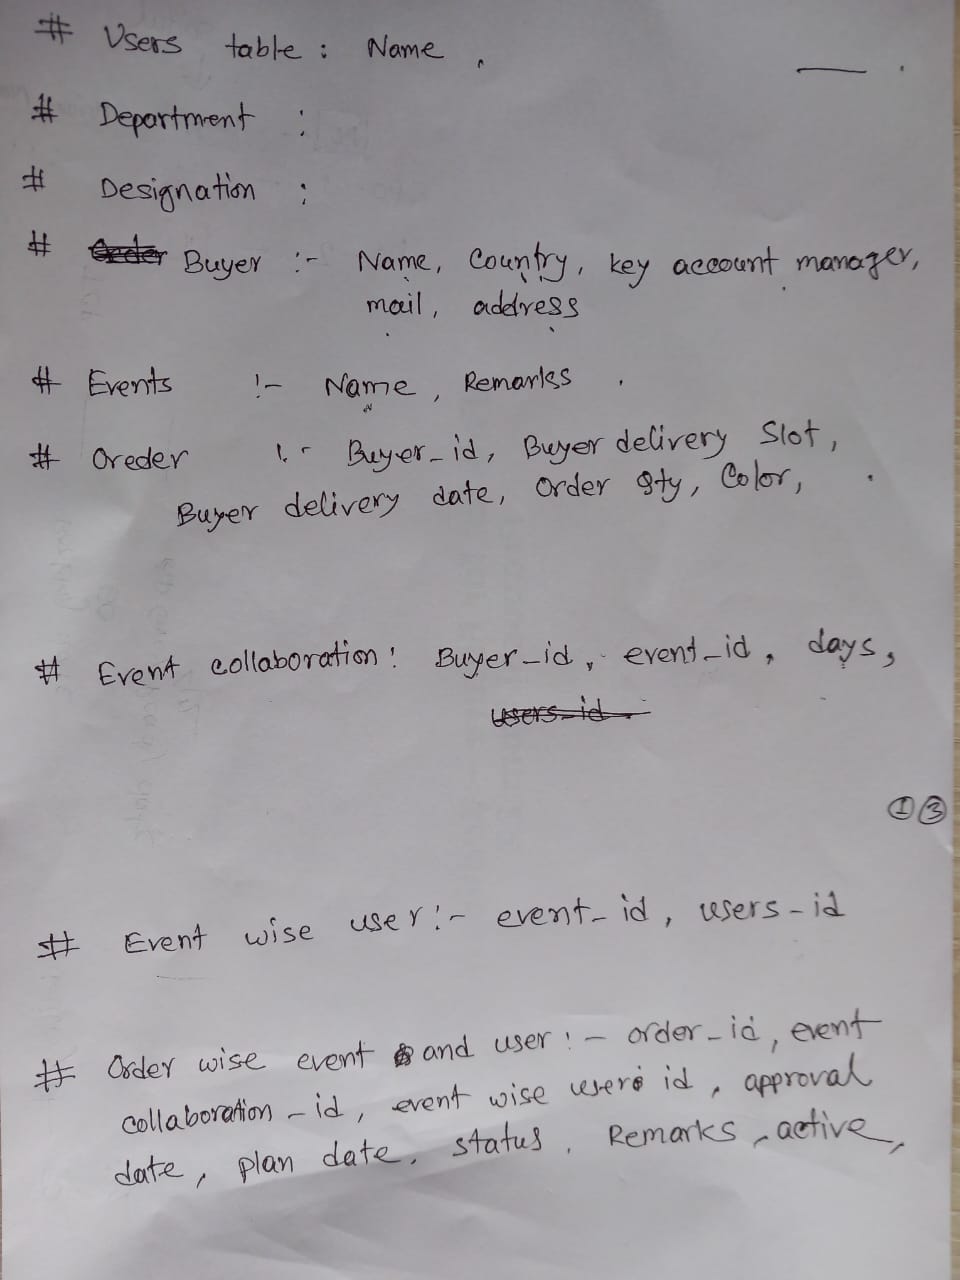 # Users table : Name .
# Department :
# Designation :
# Buyer :- Name, Country, key account manager,
mail, address
# Events :- Name, Remarks .
# Oreder :- Buyer_id, Buyer delivery Slot,
Buyer delivery date, Order Qty, Color,
# Event collaboration : Buyer_id, event_id, days,
users_id
① ③
# Event wise user :- event_id, users_id
# Order wise event and user :- order_id, event
collaboration_id, event wise users id, approval
date, plan date, status, Remarks, active,